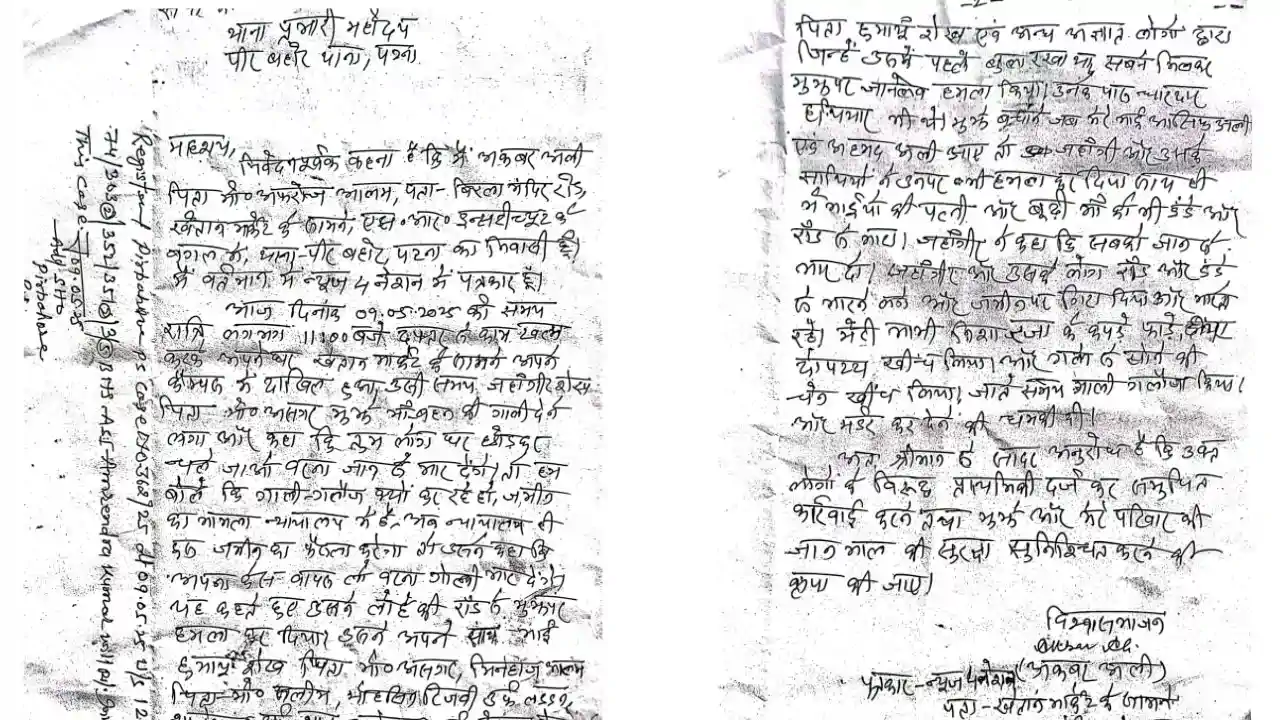 थाना प्रभारी महोदय
पीर बहोर थाना, पटना
महाशय,
निवेदनपूर्वक कहना है कि मैं अकबर अली
पिता मो० अफरोज आलम, पता- बिरला मंदिर रोड,
खेतान मार्केट के सामने, एस० आर० इन्सटीच्यूट के
बगल में, थाना-पीर बहोर, पटना का निवासी हूँ।
मैं वर्तमान में न्यूज 4 नेशन में पत्रकार हूँ।
आज दिनांक 09.05.2025 को समय
रात्रि लगभग 11:00 बजे दफ्तर से काम खत्म
करके अपने घर खेतान मार्केट के सामने अपने
कैम्पस में दाखिल हुआ, उसी समय जहाँगीर शेख
पिता मो० असगर मुझे माँ-बहन की गाली देने
लगा और कहा कि तुम लोग घर छोड़कर
चले जाओ वरना जान से मार देंगे। तो हम
बोले कि गाली-गलौज क्यों कर रहे हो, जमीन
का मामला न्यायालय में है, अब न्यायालय ही
इस जमीन का फैसला करेगा तो उसने कहा कि
अपना केस वापस लो वरना गोली मार देंगे।
यह कहते हुए उसने लोहे की रॉड से मुझपर
हमला कर दिया। उसने अपने साथ भाई
हुमायूँ शेख पिता मो० असगर, मिनहाज आलम
पिता-मो० सलीम, रिजवी उर्फ लड्डन,
Registered Pirbahore PS Case No 368/25 dt 09.05.25 u/s 12
74/303(2)/352/351(3)/3(5) BNS ASI-Amrendra Kumar
This case.
09.05.25
SHO
Pirbahore
-2-
पिता हुमायूँ शेख एवं अन्य अज्ञात लोगों द्वारा
जिन्हें उसने पहले बुला रखा था, सबने मिलकर
मुझपर जानलेवा हमला किया। उनके पास
हथियार भी थे। मुझे बचाने जब मेरे भाई आसिफ अली
एवं अहमद अली आए तो जहाँगीर और उसके
साथियों ने उनपर भी हमला कर दिया साथ ही
में भाईयों की पत्नी और बूढ़ी माँ को भी डंडे और
रॉड से मारा। जहाँगीर ने कहा कि सबको जान से
मार दो। जहाँगीर और उसके लोग रॉड और डंडे
से मारने लगे और जमीन पर गिरा दिया और मारते
रहे। मेरी भाभी के कपड़े फाड़े,
दोपट्टा खींच लिया और गले से सोने की
चेन खींच लिया। जाते समय गाली गलौज किया
और मर्डर कर देने की धमकी दी।
अतः श्रीमान से सादर अनुरोध है कि उक्त
लोगों के विरूद्ध प्राथमिकी दर्ज कर समुचित
कार्रवाई करने तथा मुझे और मेरे परिवार की
जान माल की सुरक्षा सुनिश्चित करने की
कृपा की जाए।
विश्वासभाजन
(अकबर अली)
पत्रकार-न्यूज 4 नेशन
पता-खेतान मार्केट के सामने